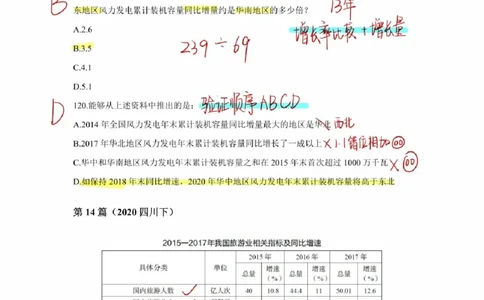 B
东地区风力发电累计装机容量同比增量约是华南地区的多少倍?
13年
增长率比较+增长量
A.2.6
239÷69
B.3.5
C.4.1
D.5.1
D
120.能够从上述资料中推出的是:
验证顺序ABCD
A.2014年全国风力发电年末累计装机容量同比增量最大的地区是华北
×西北
B.2017年华北地区风力发电年末累计装机容量同比增长了一成以上
×1-1错位相加
C.华中和华南地区风力发电年末累计装机容量之和在2015年末首次超过1000万千瓦
×
D.如保持2018年末同比增速,2020年华中地区风力发电年末累计装机容量将高于东北
第14篇(2020四川下)
2015—2017年我国旅游业相关指标及同比增速
2015年 2016年 2017年
具体分类 单位 总量 增速(%) 总量 增速(%) 总量 增速(%)
国内旅游人数 亿人次 40 10.8 44.4 11 50.01 12.6